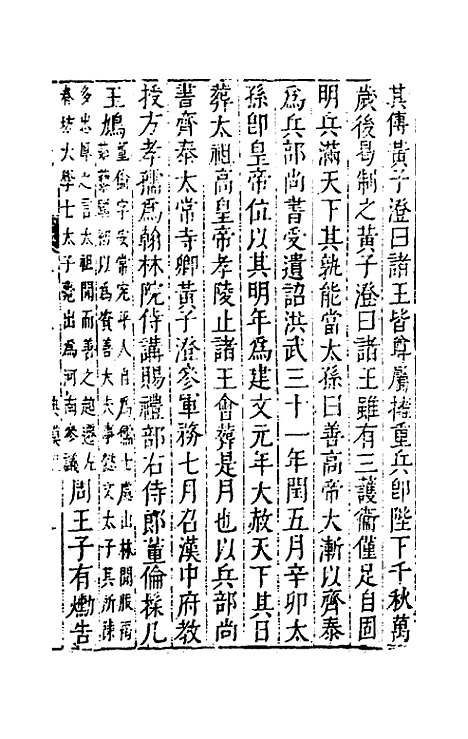 其傳黃子澄曰諸王皆尊屬擁重兵卽陛下千秋萬
歲後曷制之黃子澄曰諸王雖有三護衞僅足自固
朙兵滿天下其孰能當太孫曰善高帝大漸以齊泰
爲兵部尚書受遺詔洪武三十一年閏五月辛卯太
孫卽皇帝位以其明年爲建文元年大赦天下其日
葬太祖高皇帝孝陵止諸王會葬是月也以兵部尚
書齊泰太常寺卿黃子澄叅軍務七月召漢中府教
授方孝孺爲翰林院侍講賜禮部右侍郎董倫採几
王鳩董倫字安常宛平人自爲儒士處山林間服雨
以爲贊善大夫事懿文太子其所陳
多忠厚之言太祖聞而善之超遷左
春坊大學士太子薨出爲河南參議周王子有爋告